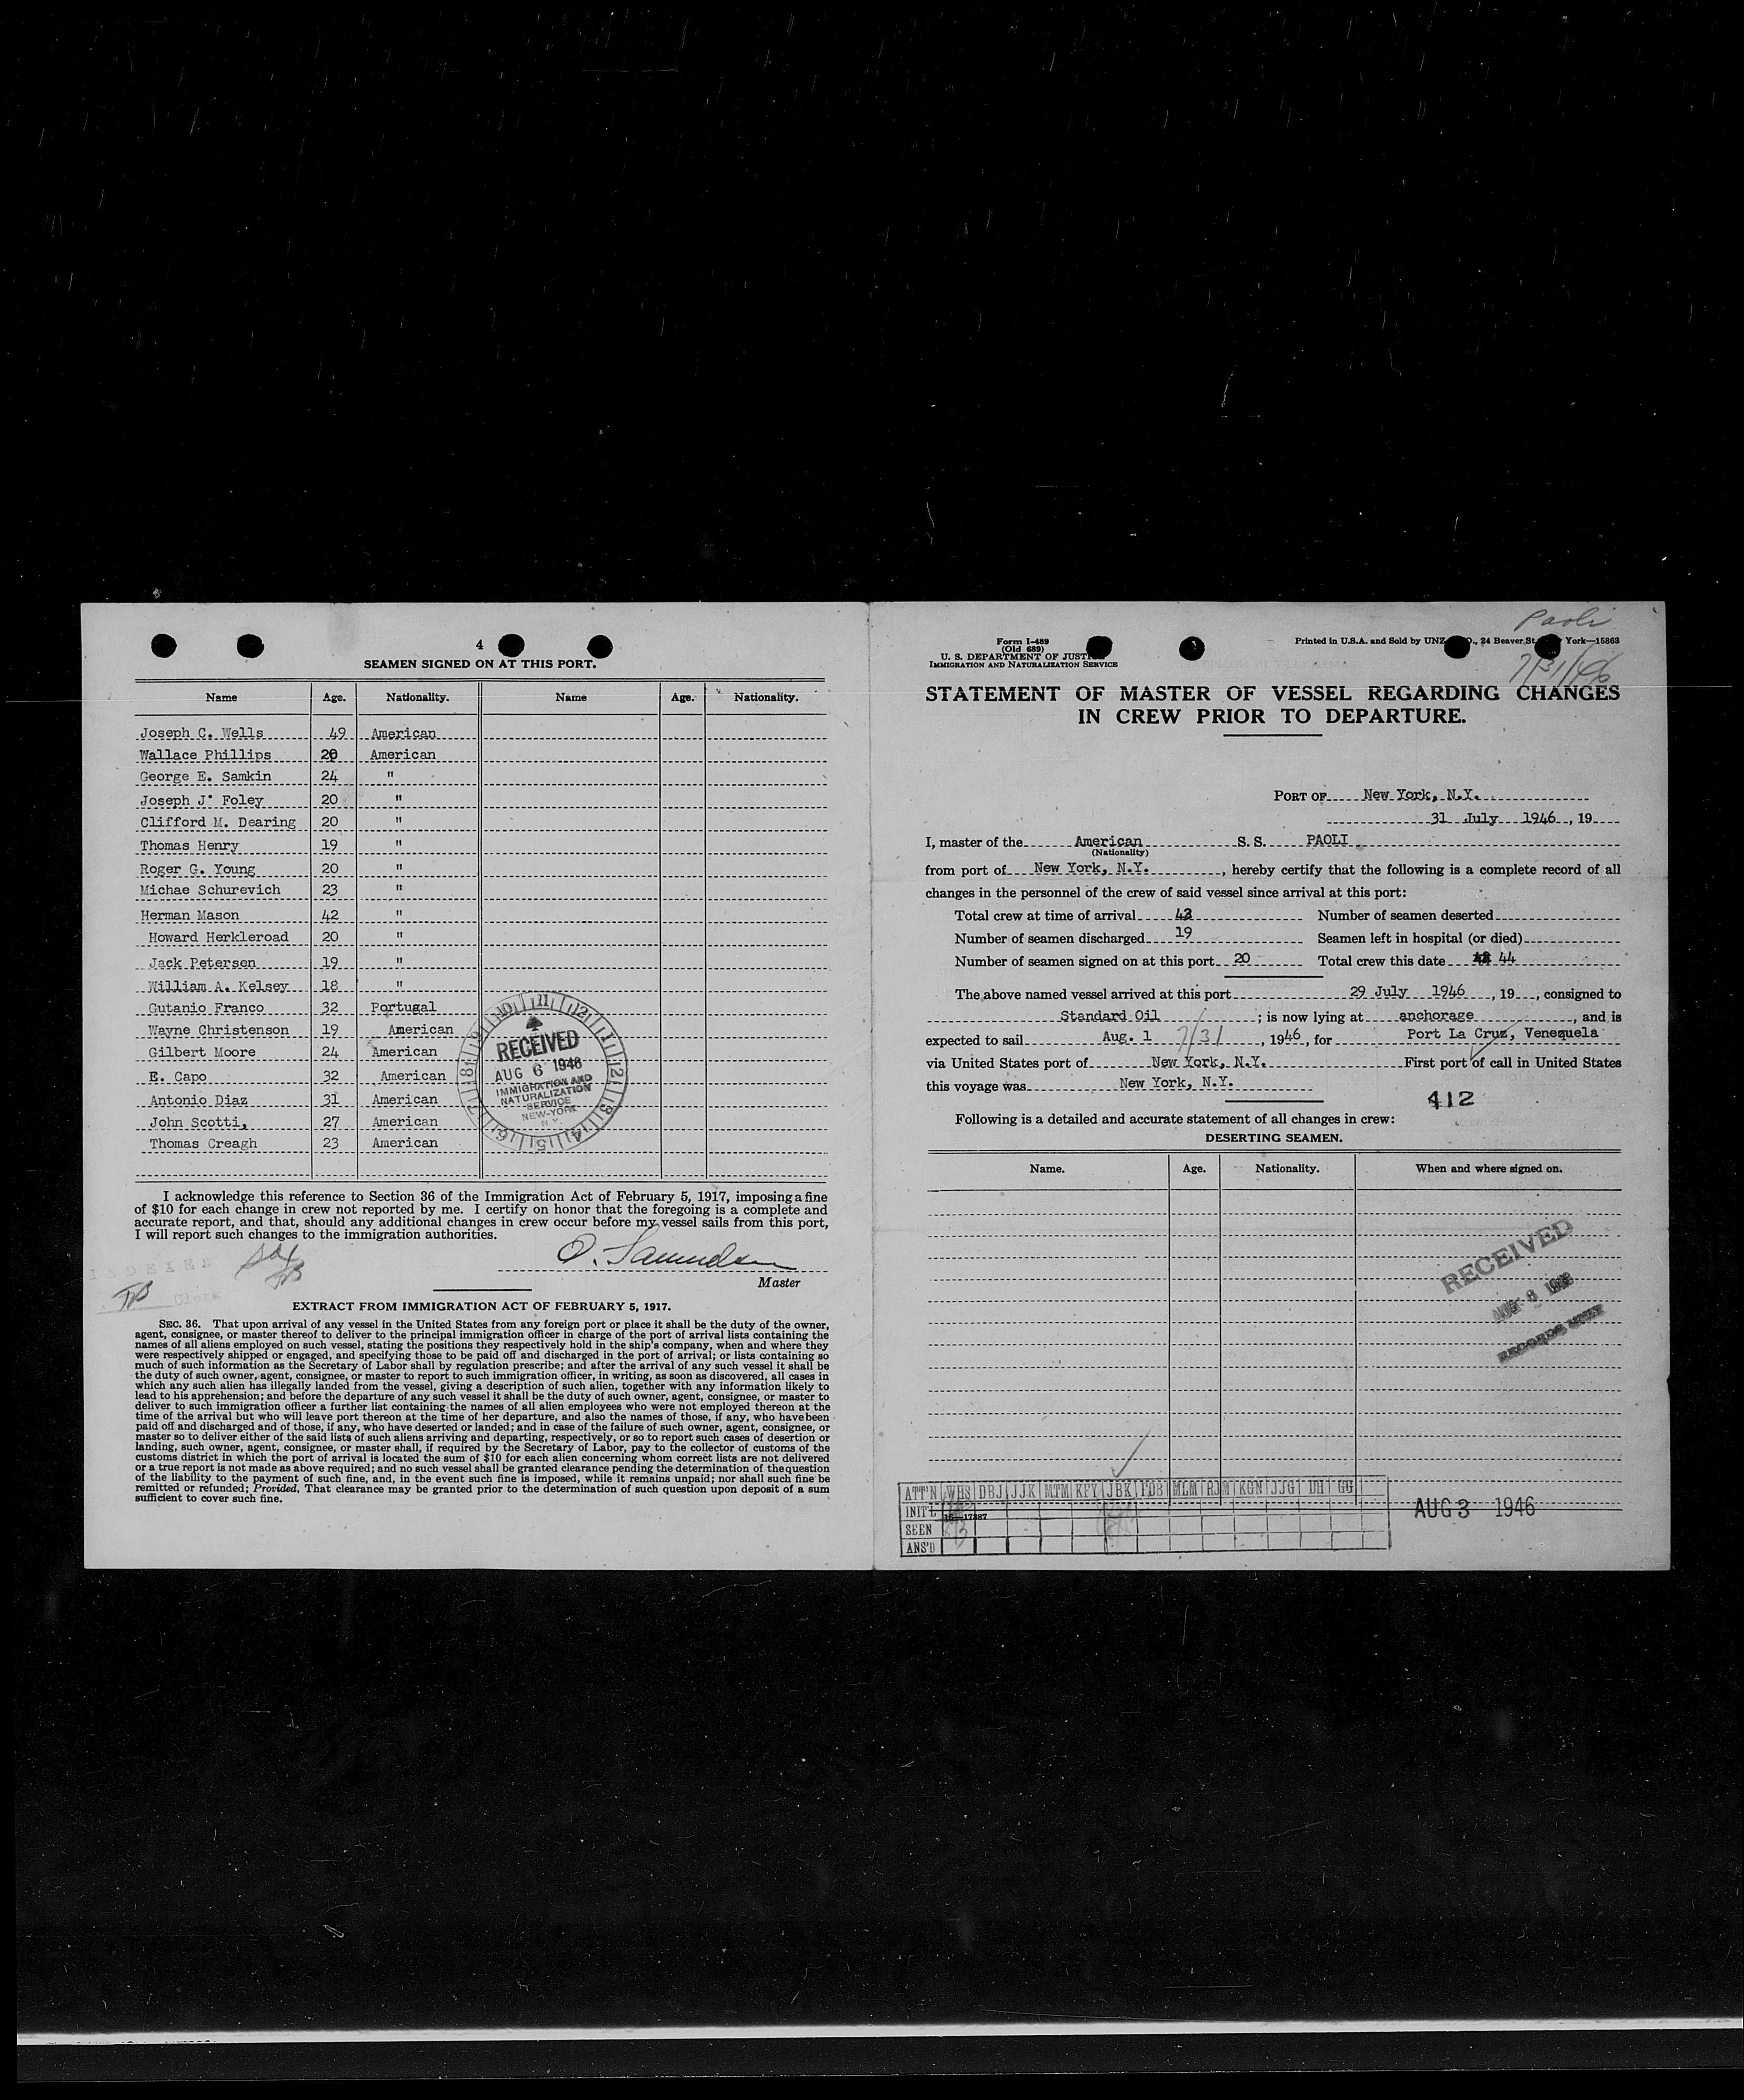 4
SEAMEN SIGNED ON AT THIS PORT.
Name Age. Nationality. Name Age. Nationality.
Joseph C. Wells 49 American
Wallace Phillips 20 American
George E. Samkin 24 "
Joseph J. Foley 20 "
Clifford M. Dearing 20 "
Thomas Henry 19 "
Roger G. Young 20 "
Michae Schurevich 23 "
Herman Mason 42 "
Howard Herkleroad 20 "
Jack Petersen 19 "
William A. Kelsey 18 "
Gutanio Franco 32 Portugal
Wayne Christenson 19 American
Gilbert Moore 24 American
E. Capo 32 American
Antonio Diaz 31 American
John Scotti, 27 American
Thomas Creagh 23 American
RECEIVED
AUG 6 1946
IMMIGRATION AND
NATURALIZATION
SERVICE
NEW-YORK
N.Y.
I acknowledge this reference to Section 36 of the Immigration Act of February 5, 1917, imposing a fine
of $10 for each change in crew not reported by me. I certify on honor that the foregoing is a complete and
accurate report, and that, should any additional changes in crew occur before my vessel sails from this port,
I will report such changes to the immigration authorities.
INDEXED
Clerk
Master
EXTRACT FROM IMMIGRATION ACT OF FEBRUARY 5, 1917.
SEC. 36. That upon arrival of any vessel in the United States from any foreign port or place it shall be the duty of the owner,
agent, consignee, or master thereof to deliver to the principal immigration officer in charge of the port of arrival lists containing the
names of all aliens employed on such vessel, stating the positions they respectively hold in the ship's company, when and where they
were respectively shipped or engaged, and specifying those to be paid off and discharged in the port of arrival; or lists containing so
much of such information as the Secretary of Labor shall by regulation prescribe; and after the arrival of any such vessel it shall be
the duty of such owner, agent, consignee, or master to report to such immigration officer, in writing, as soon as discovered, all cases in
which any such alien has illegally landed from the vessel, giving a description of such alien, together with any information likely to
lead to his apprehension; and before the departure of any such vessel it shall be the duty of such owner, agent, consignee, or master to
deliver to such immigration officer a further list containing the names of all alien employees who were not employed thereon at the
time of the arrival but who will leave port thereon at the time of her departure, and also the names of those, if any, who have been
paid off and discharged and of those, if any, who have deserted or landed; and in case of the failure of such owner, agent, consignee, or
master so to deliver either of the said lists of such aliens arriving and departing, respectively, or so to report such cases of desertion or
landing, such owner, agent, consignee, or master shall, if required by the Secretary of Labor, pay to the collector of customs of the
customs district in which the port of arrival is located the sum of $10 for each alien concerning whom correct lists are not delivered
or a true report is not made as above required; and no such vessel shall be granted clearance pending the determination of the question
of the liability to the payment of such fine, and, in the event such fine is imposed, while it remains unpaid; nor shall such fine be
remitted or refunded; Provided, That clearance may be granted prior to the determination of such question upon deposit of a sum
sufficient to cover such fine.
Paoli
7/31/46
Form I-489
(Old 689)
U. S. DEPARTMENT OF JUSTICE
IMMIGRATION AND NATURALIZATION SERVICE
Printed in U.S.A. and Sold by UNZ 24 Beaver St. York—15863
STATEMENT OF MASTER OF VESSEL REGARDING CHANGES
IN CREW PRIOR TO DEPARTURE.
PORT OF New York, N.Y.
31 July 1946, 19
I, master of the American S. S. PAOLI
(Nationality)
from port of New York, N.Y., hereby certify that the following is a complete record of all
changes in the personnel of the crew of said vessel since arrival at this port:
Total crew at time of arrival 43 Number of seamen deserted
Number of seamen discharged 19 Seamen left in hospital (or died)
Number of seamen signed on at this port 20 Total crew this date 44
The above named vessel arrived at this port 29 July 1946, 19, consigned to
Standard Oil ; is now lying at anchorage, and is
expected to sail Aug. 1 7/31, 1946, for Port La Cruz, Venequela
via United States port of New York, N.Y. First port of call in United States
this voyage was New York, N.Y.
412
Following is a detailed and accurate statement of all changes in crew:
DESERTING SEAMEN.
Name. Age. Nationality. When and where signed on.
RECEIVED
RECORDS UNIT
ATT'N WHS DBJ JJK MTM KFY JBK FDB MLM RJM KGN JJG DH GG
INIT'L 16—17387
SEEN
ANS'D
AUG 3 1946